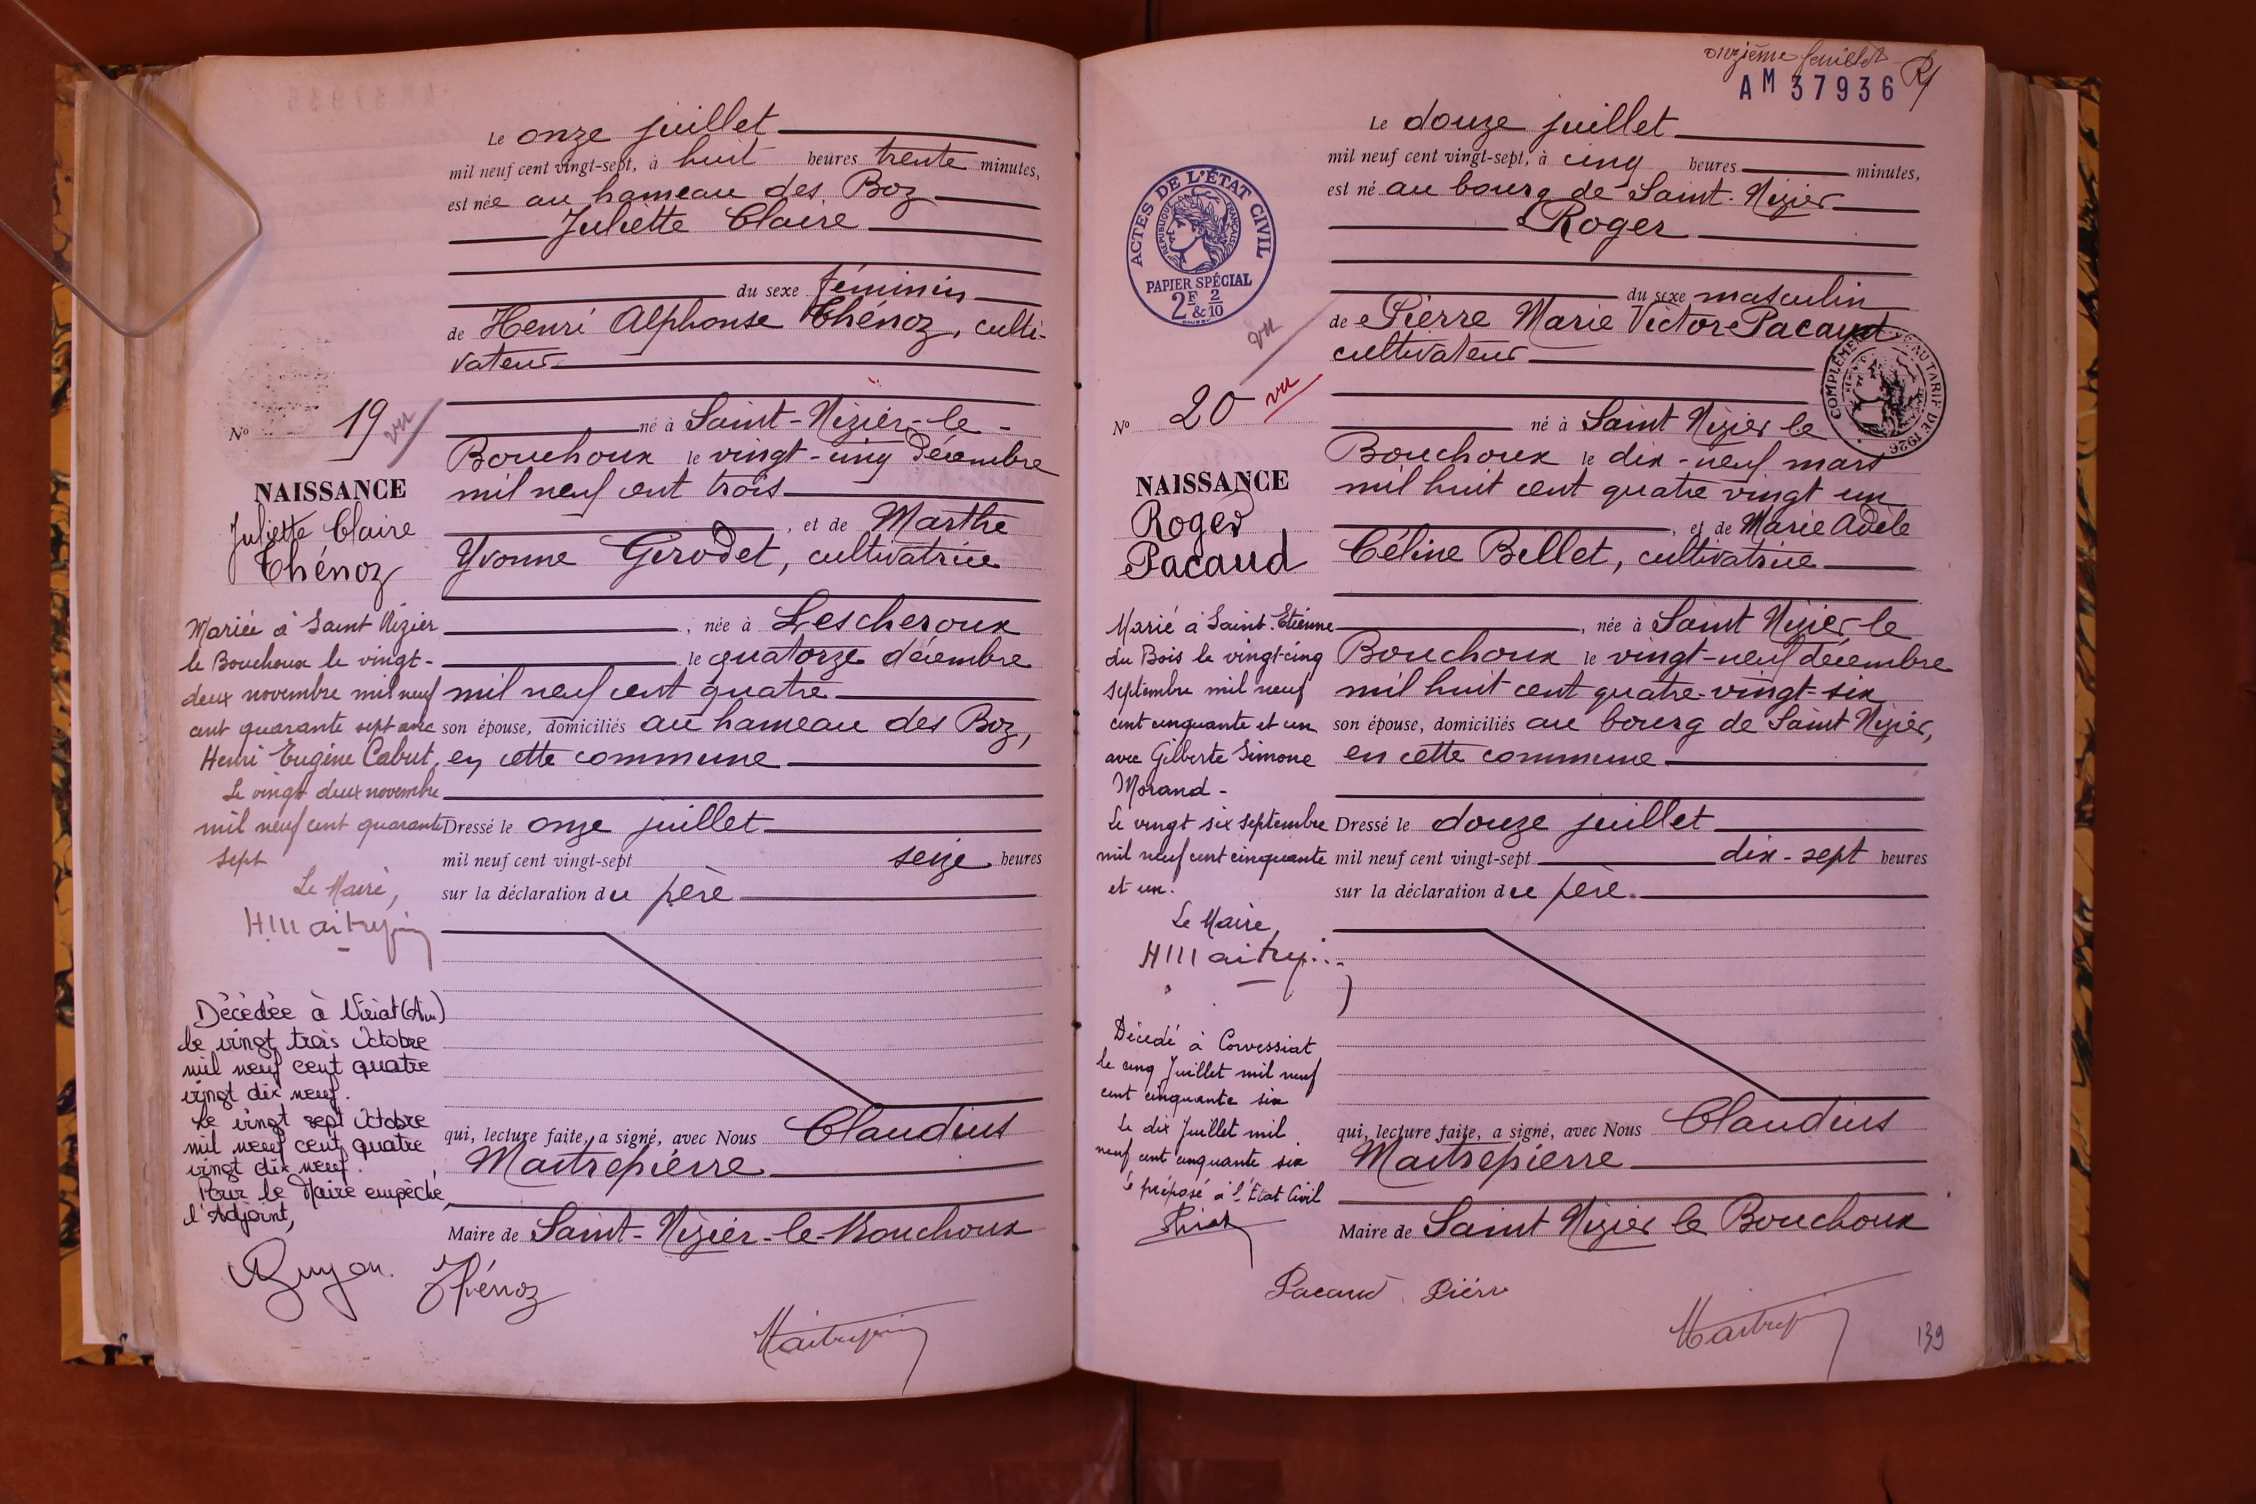 Le onze juillet
mil neuf cent vingt-sept, à huit heures trente minutes,
est née au hameau des Boz
Juliette Claire
du sexe féminin
de Henri Alphonse Thénoz, culti-
vateur
né à Saint-Nizier-le-
Bouchoux le vingt-cinq Décembre
mil neuf cent trois
, et de Marthe
Yvonne Girodet, cultivatrice
, née à Lescheroux
le quatorze décembre
mil neuf cent quatre
son épouse, domiciliés au hameau des Boz,
en cette commune
Dressé le onze juillet
mil neuf cent vingt-sept seize heures
sur la déclaration du père
qui, lecture faite, a signé, avec Nous Claudius
Maitrepierre
Maire de Saint-Nizier-le-Bouchoux
Thénoz
No 19
vu
NAISSANCE
Juliette Claire
Thénoz
Mariée à Saint Nizier
le Bouchoux le vingt-
deux novembre mil neuf
cent quarante sept avec
Henri Eugène Cabut,
Le vingt deux novembre
mil neuf cent quarante
sept
Le Maire,
Décédée à Viriat (Ain)
le vingt trois Octobre
mil neuf cent quatre
vingt dix neuf.
Le vingt sept Octobre
mil neuf cent quatre
vingt dix neuf.
Pour le Maire empêché,
l'Adjoint,
onzième feuillet
AM 37936
Le douze juillet
mil neuf cent vingt-sept, à cinq heures minutes,
est né au bourg de Saint-Nizier
Roger
du sexe masculin
de Pierre Marie Victor Pacaud
cultivateur
né à Saint Nizier le
Bouchoux le dix-neuf mars
mil huit cent quatre vingt un
, et de Marie Adèle
Céline Billet, cultivatrice
, née à Saint Nizier-le
Bouchoux le vingt-neuf décembre
mil huit cent quatre-vingt-six
son épouse, domiciliés au bourg de Saint Nizier,
en cette commune
Dressé le douze juillet
mil neuf cent vingt-sept dix-sept heures
sur la déclaration du père.
qui, lecture faite, a signé, avec Nous Claudius
Maitrepierre
Maire de Saint Nizier le Bouchoux
Pacaud Pierre
139
ACTES DE L'ÉTAT CIVIL
RÉPUBLIQUE FRANÇAISE
PAPIER SPÉCIAL
2F & 2/10
COMPLÉMENT
AU TARIF DE 1926
vu
No 20 vu
NAISSANCE
Roger
Pacaud
Marié à Saint-Etienne
du Bois le vingt-cinq
septembre mil neuf
cent cinquante et un
avec Gilberte Simone
Morand-
Le vingt six septembre
mil neuf cent cinquante
et un.
Le Maire,
Décédé à Corveissiat
le cinq Juillet mil neuf
cent cinquante six
Le dix Juillet mil
neuf cent cinquante six
le préposé à l'Etat Civil